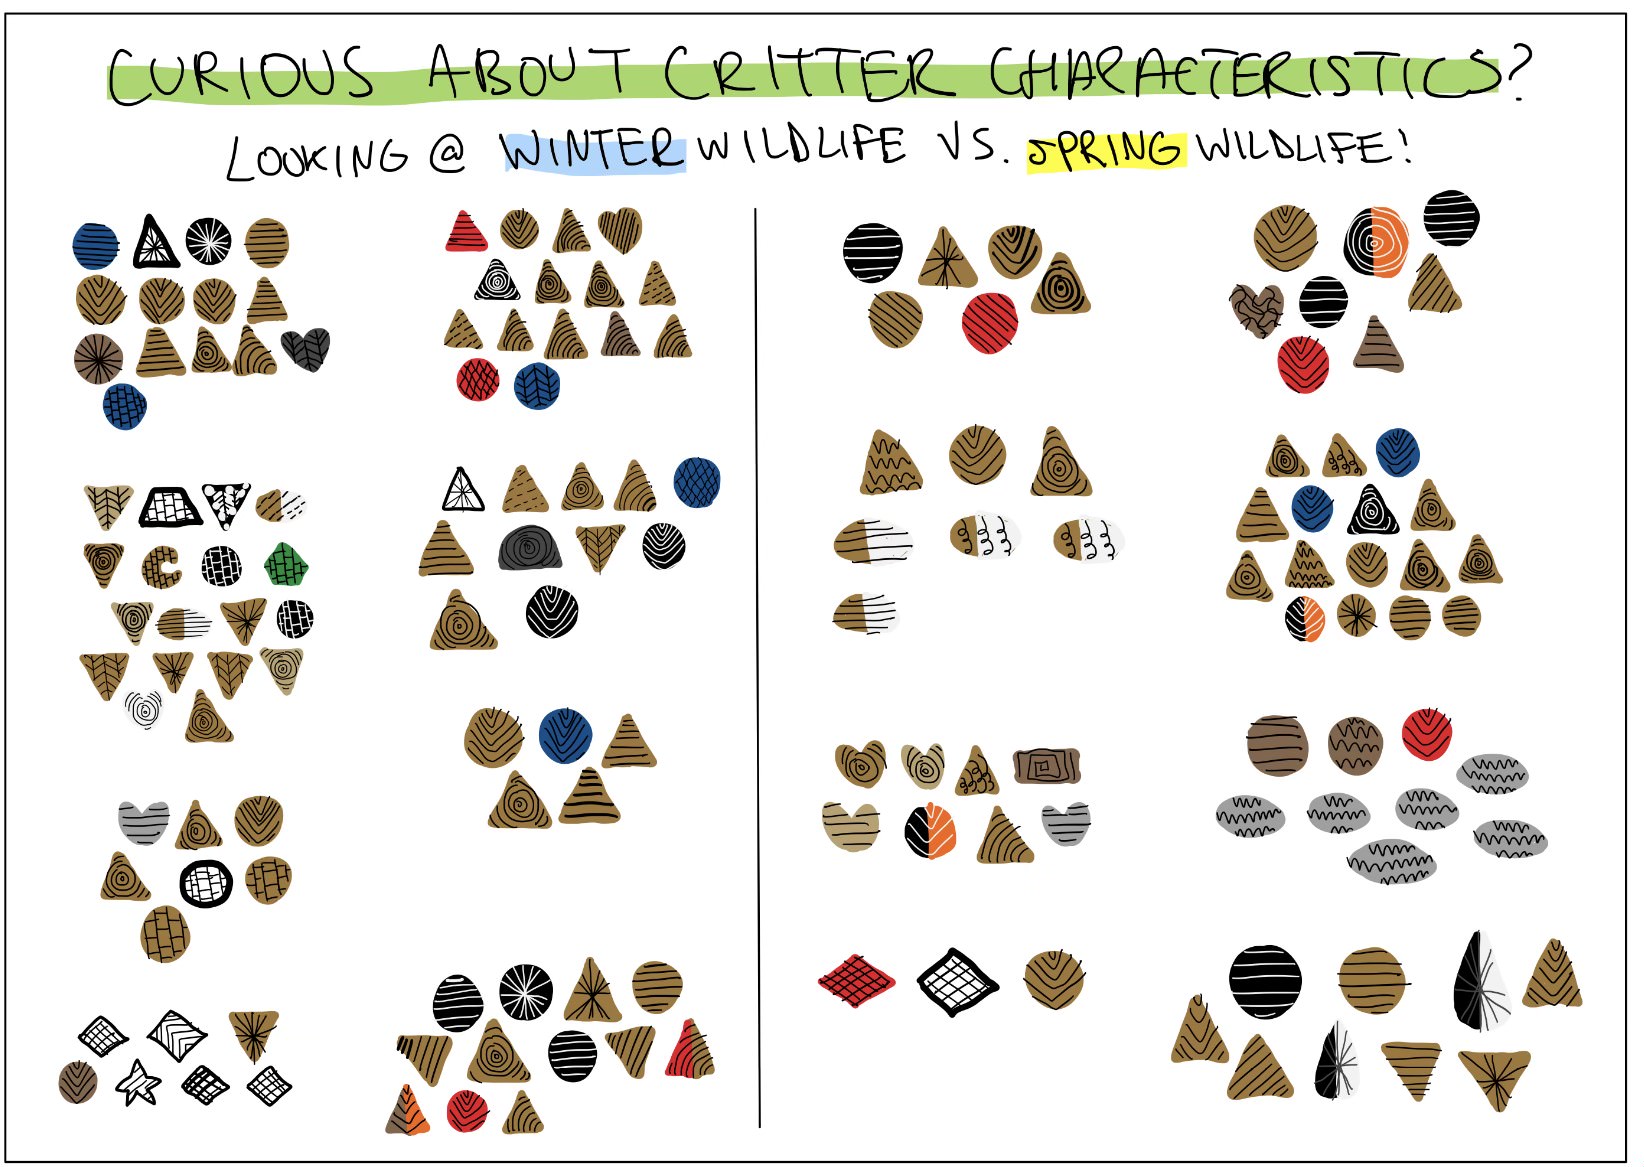 CURIOUS ABOUT CRITTER CHARACTERISTICS?
LOOKING @ WINTER WILDLIFE VS. SPRING WILDLIFE!